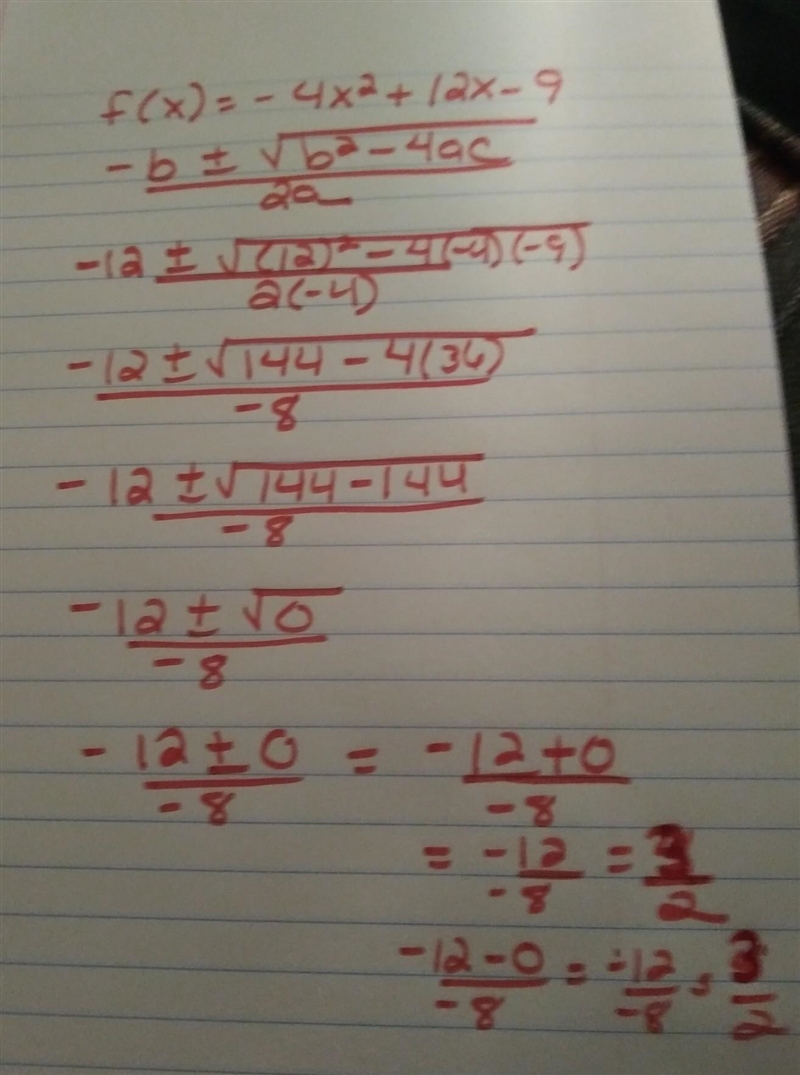 f(x) = - 4x² + 12x - 9
- b ± √b² - 4ac
2a
-12 ± √(12)² - 4(-4)(-9)
2(-4)
-12 ± √144 - 4(36)
-8
- 12 ± √144 - 144
-8
- 12 ± √0
-8
- 12 ± 0 = -12 + 0
-8 -8
= -12 = 3
-8 2
-12 - 0 = -12 = 3
-8 -8 2